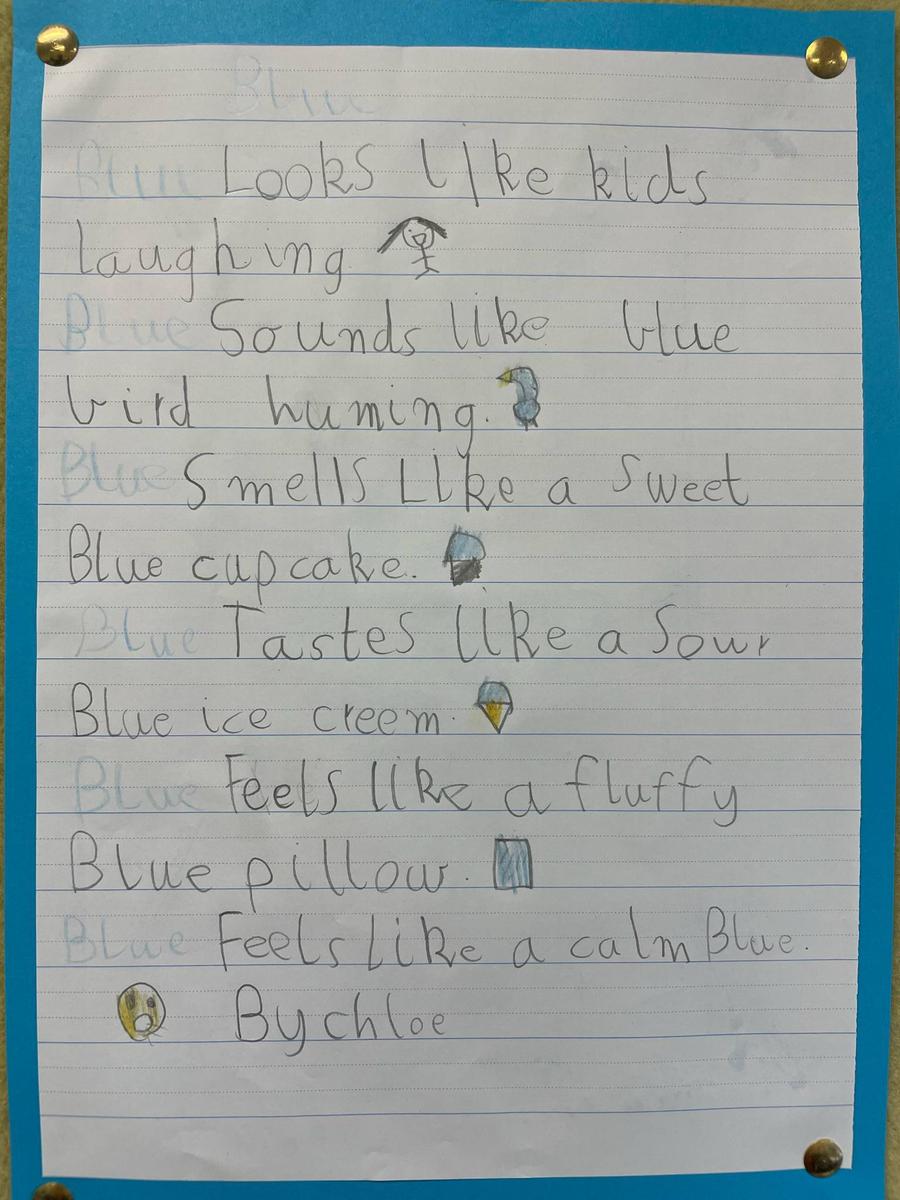 Blue
Blue Looks like kids
laughing
Blue Sounds like blue
bird huming.
Blue Smells Like a sweet
Blue cupcake.
Blue Tastes like a Sour
Blue ice creem.
Blue Feels like a fluffy
Blue pillow.
Blue Feels like a calm Blue.
By chloe